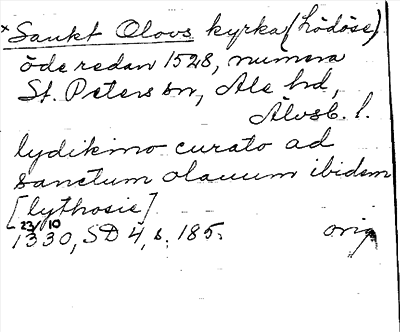 *Sankt Olovs kyrka (Lödöse)
öde redan 1528, numera
St. Peters sn, Ale hd,
Älvsb. l.
lydikino curato ad
sanctum olauum ibidem
[lythosie]
23/10
1330, SD 4, s. 185. orig